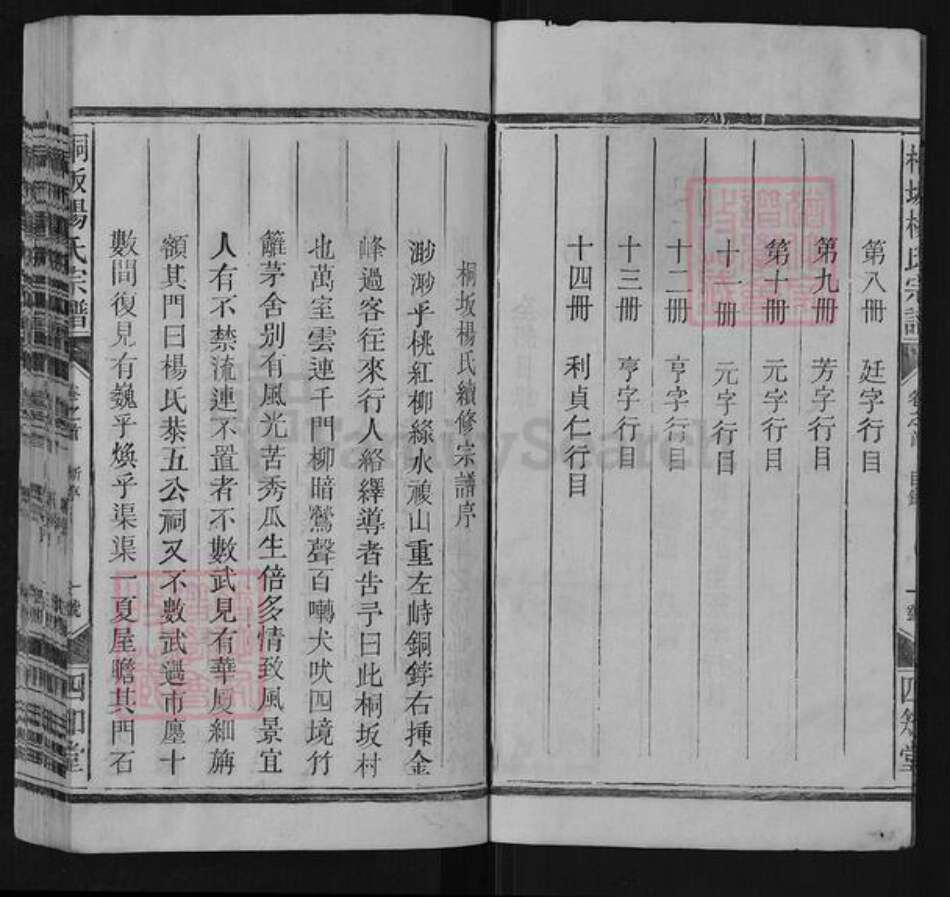 第八冊 廷字行目
第九冊 芳字行目
第十冊 元字行目
十一冊 元字行目
十二冊 亨字行目
十三冊 亨字行目
十四冊 利貞仁行目
四知堂
桐坂楊氏續修宗譜序
渺渺乎桃紅柳綠水複山重左峙銅鋍右揷金
峰過客往來行人絡繹導者告予曰此桐坂村
也萬室雲連千門柳暗鶯聲百囀犬吠四境竹
籬茅舍别有風光苦秀瓜生倍多情致風景宜
人有不禁流連不置者不數武見有華厦細旃
額其門曰楊氏恭五公祠又不數武過市廛十
數間復見有巍乎煥乎渠渠一夏屋瞻其門石
桐坂楊氏宗譜
四知堂
FamilySearch